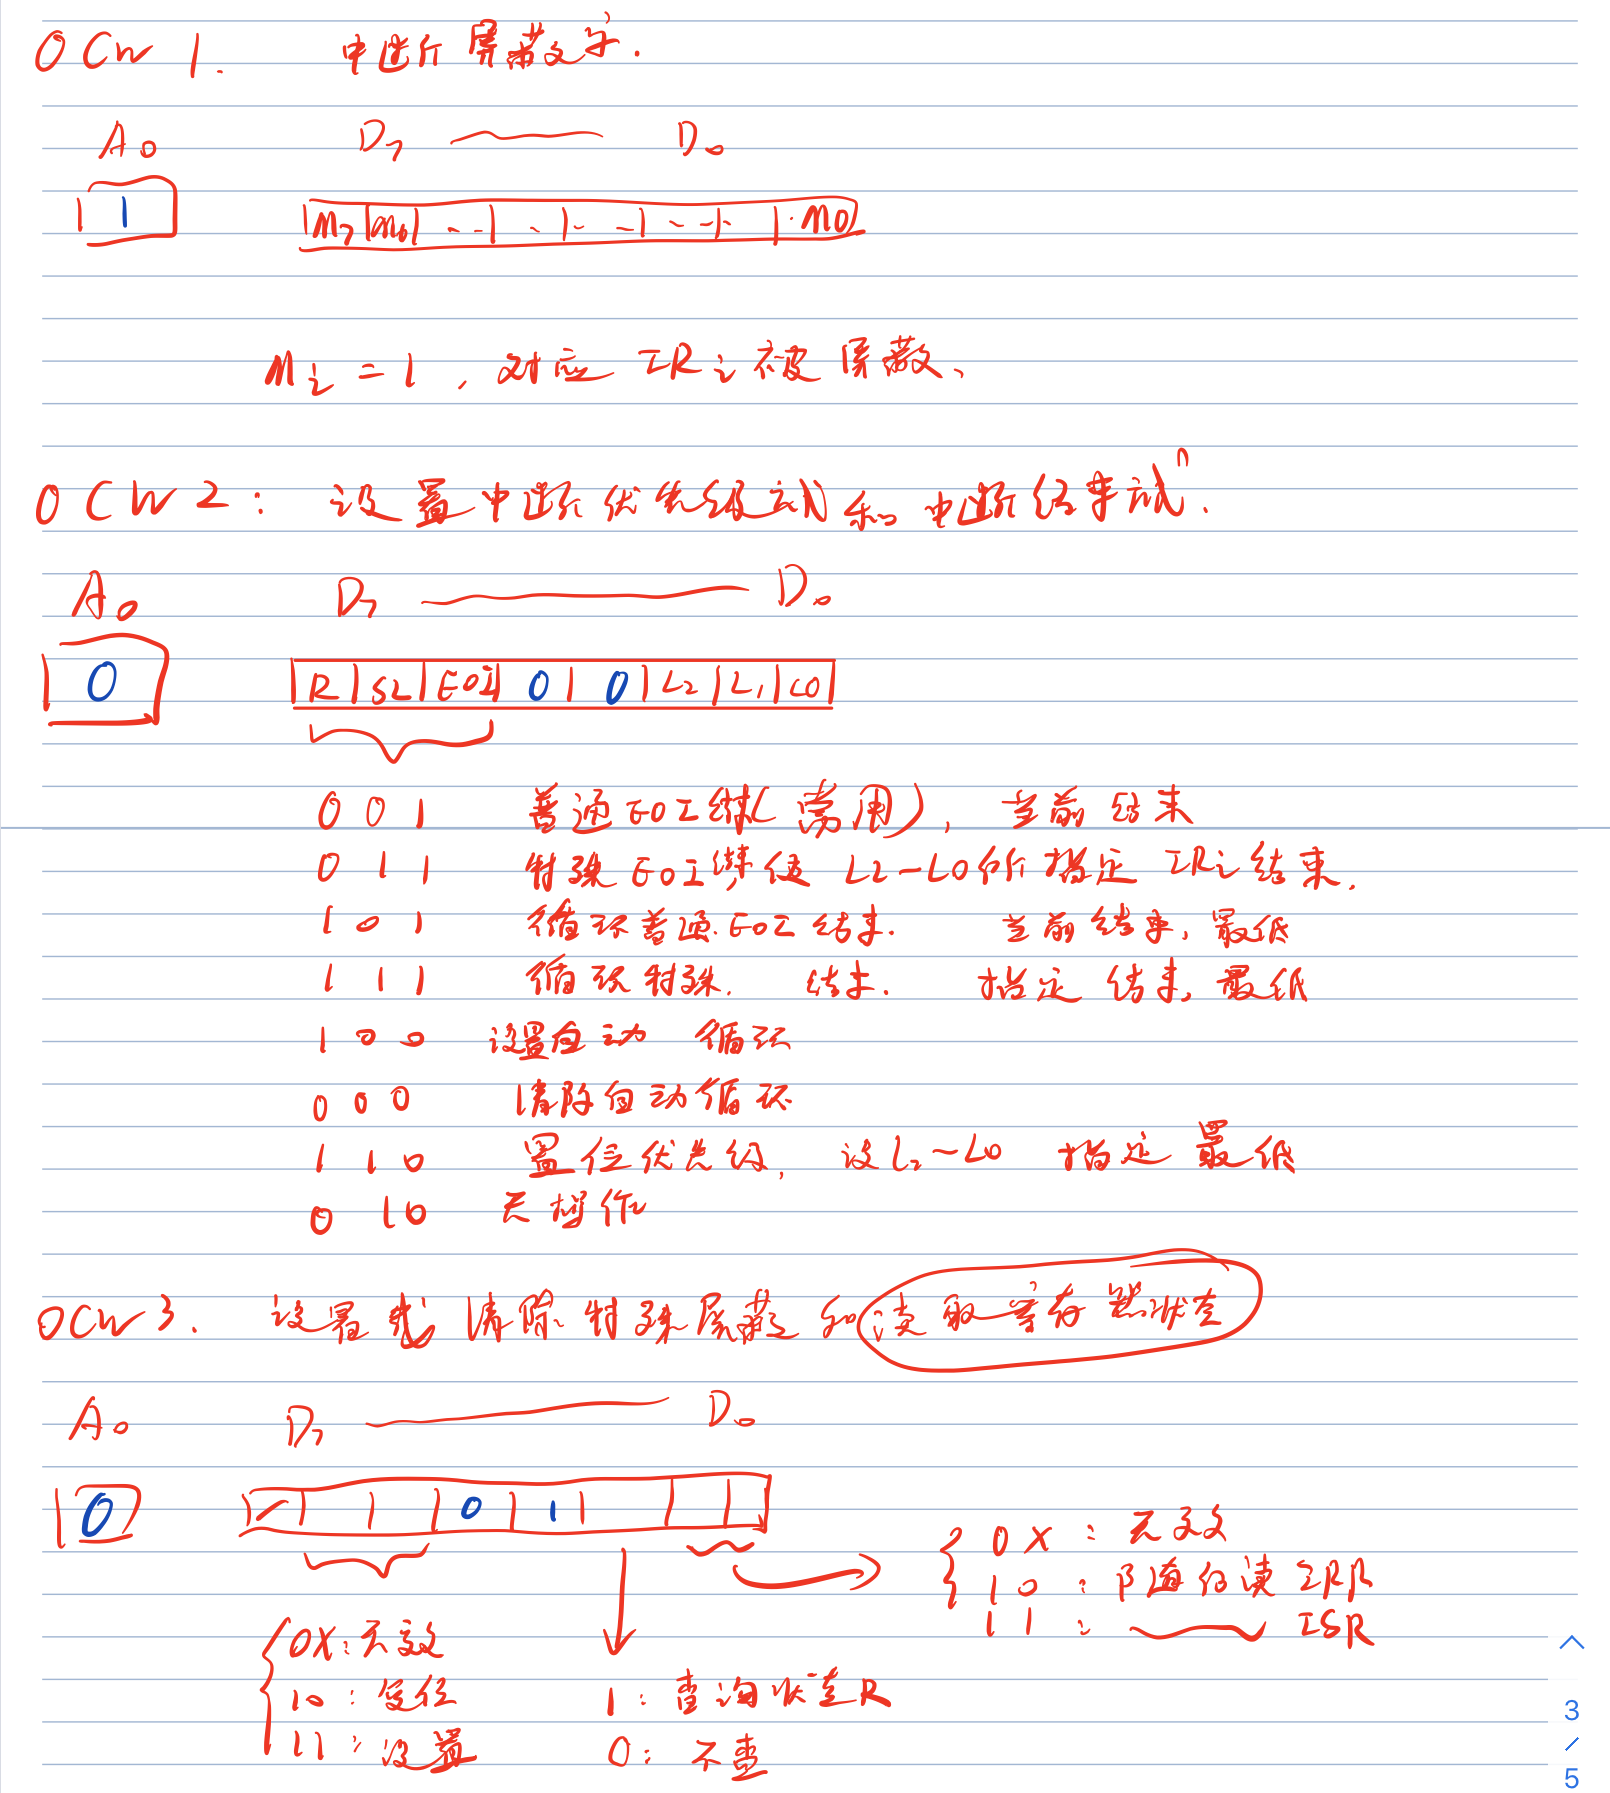 OCW 1. 中断屏蔽文字.
A0 D7 D0
1 M7 M6 -- -- -- -- M0
Mi = 1, 对应 IRi 被屏蔽、
OCW2: 设置中断优先级方式和中断结束方式.
A0 D7 D0
0 R SL EOI 0 0 L2 L1 L0
0 0 1 普通EOI结束(常用), 当前结束
0 1 1 特殊EOI结束,使 L2~L0所指定 IRi结束.
1 0 1 循环普通EOI结束. 当前结束,最低
1 1 1 循环特殊. 结束. 指定结束,最低
1 0 0 设置自动 循环
0 0 0 清除自动循环
1 1 0 置位优先级, 设L2~L0 指定最低
0 1 0 无操作
OCW3. 设置或清除特殊屏蔽和读取寄存器状态
A0 D7 D0
0 0 1
0X: 无效
10: 复位
11: 设置
1: 查询状态R
0: 不查
0X: 无效
10: 随后读IRR
11: ISR
3
/
5